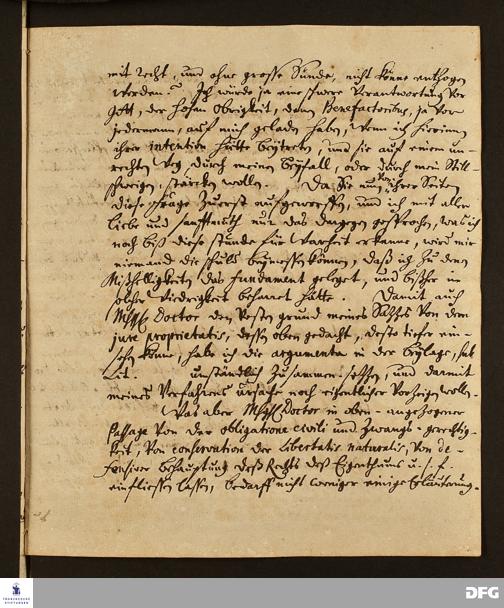 mit recht, und ohne grosse Sünde, nicht könne entzogen
werden. Ich würde ja eine schwere Verantwortung vor
Gott, der hohen Obrigkeit, denn Benefactoribus, ja vor
jedermann, auf mich geladen haben, wenn ich hierinnen
ihrer intention hätte beytreten, und sie auf einem un-
rechten Weg durch meinen Beyfall, oder durch mein Still-
schweigen, stärcken wollen. Da Sie nun von ihrer Seiten
diese Frage zuerst aufgeworffen, und ich mit aller
Liebe und Sanfftmuth nur das dargegen gesprochen, was ich
noch biß diese Stunde für Warheit erkenne, wird mir
niemand die Schuld beymessen können, daß ich zu den
Mißhelligkeiten das fundament geleget, und bißher in
solcher Widrigkeit beharret hätte. Damit auch
Doctor den Grund meines Satzes von dem
jure proprietatis, dessen oben gedacht, desto tiefer ein-
sehen könne, habe ich die argumenta in der Beylage, sub
Lit. umständlich zusammen setzen, und darmit
meines Verfahrens Ursache noch eigentlicher vorzeigen wollen.
Was aber Doctor in oben-angezogener
Passage von der obligatione civili und Zwangs-gerechtig-
keit, von conservation der Libertatis naturalis, von de-
fensiver Behauptung deß Rechts deß Eigenthums u. s. f.
einfliessen lassen, bedarff nicht weniger einige Erläuterung.
FRANCKESCHE
STIFTUNGEN
DFG